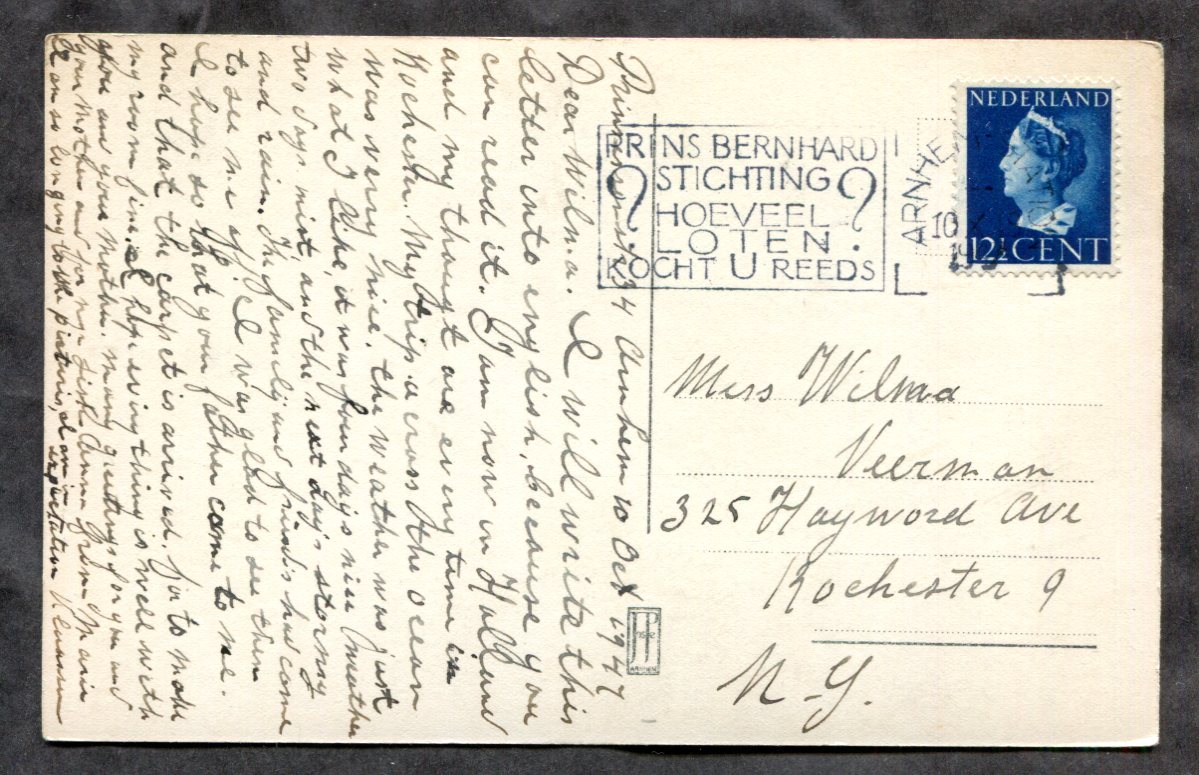 Arnhem 10 Oct 1947
Dear Wilma. I will write this
letter into english, because you
can read it. I am now in Holland
and my thougt are every time in
Rochester. My trip accross the ocean
was very nice. the weather was just
what I like, it was four days nice weather
two days mist, and the next days stormy
and rain. The family and friends had come
to see me off. I was glad to see them
I hope so that your father come to me.
and that the carpet is arived. for to make
my room fine. I hope everything is well with
you and your mother. many greetings for you and
your mother and for my sister Anna from Marie
NEDERLAND
12½ CENT
ARNHEM
10 X
PRINS BERNHARD
STICHTING
? HOEVEEL ?
LOTEN
KOCHT U REEDS
Miss Wilma
Veerman
325 Hayword Ave
Rochester 9
N-Y.
JP
ARNHEM